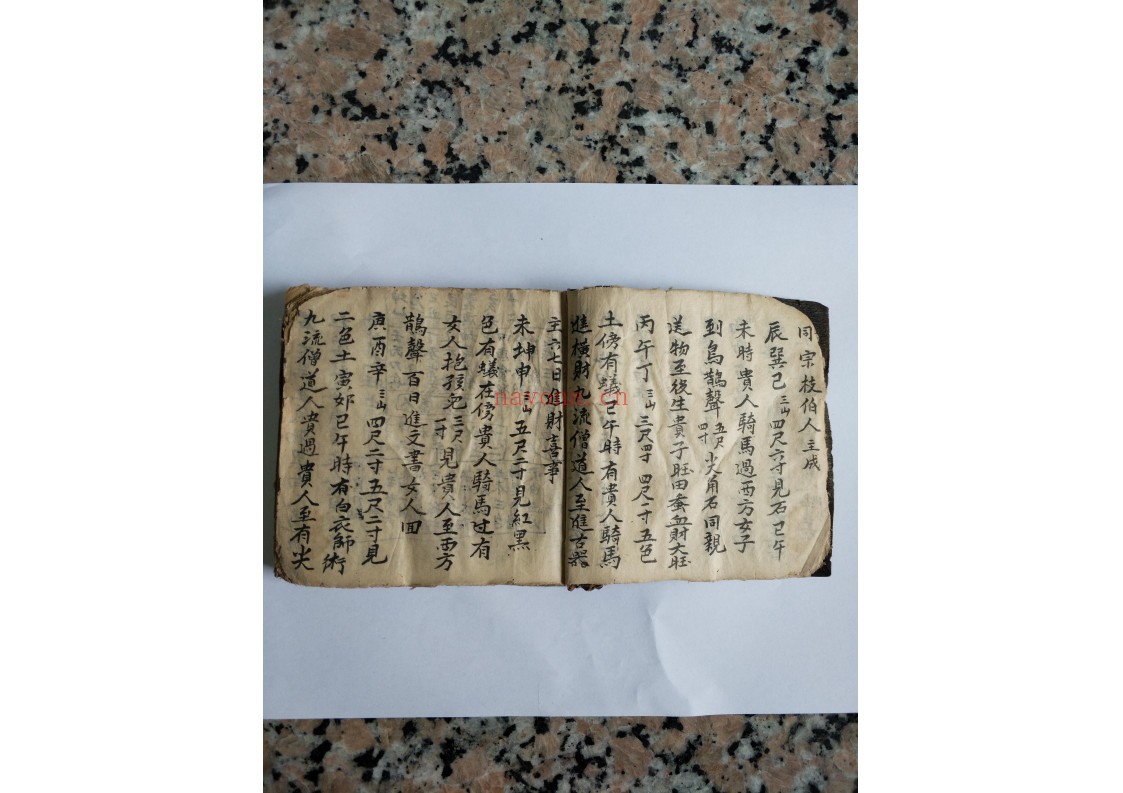 同宗枝伯人主成
辰巽巳三山四尺六寸見石巳午
未時貴人騎馬過西方女子
到烏鵲聲五尺四寸尖角石同親
送物至後生貴子旺田蚕血財大旺
丙午丁三山三尺四寸四尺一寸五色
土傍有蟻巳午時有貴人騎馬
進橫財九流僧道人至進古器
主六七日進財喜事
未坤申三山五尺二寸見紅黑
色有蟻在傍貴人騎馬过有
女人抱孩兒三尺一寸見貴人至西方
鵲聲百日進文書女人回
庚酉辛三山四尺二寸五尺二寸見
二色土寅卯巳午時有白衣師術
九流僧道人貴過貴人至有尖
nayona.cn